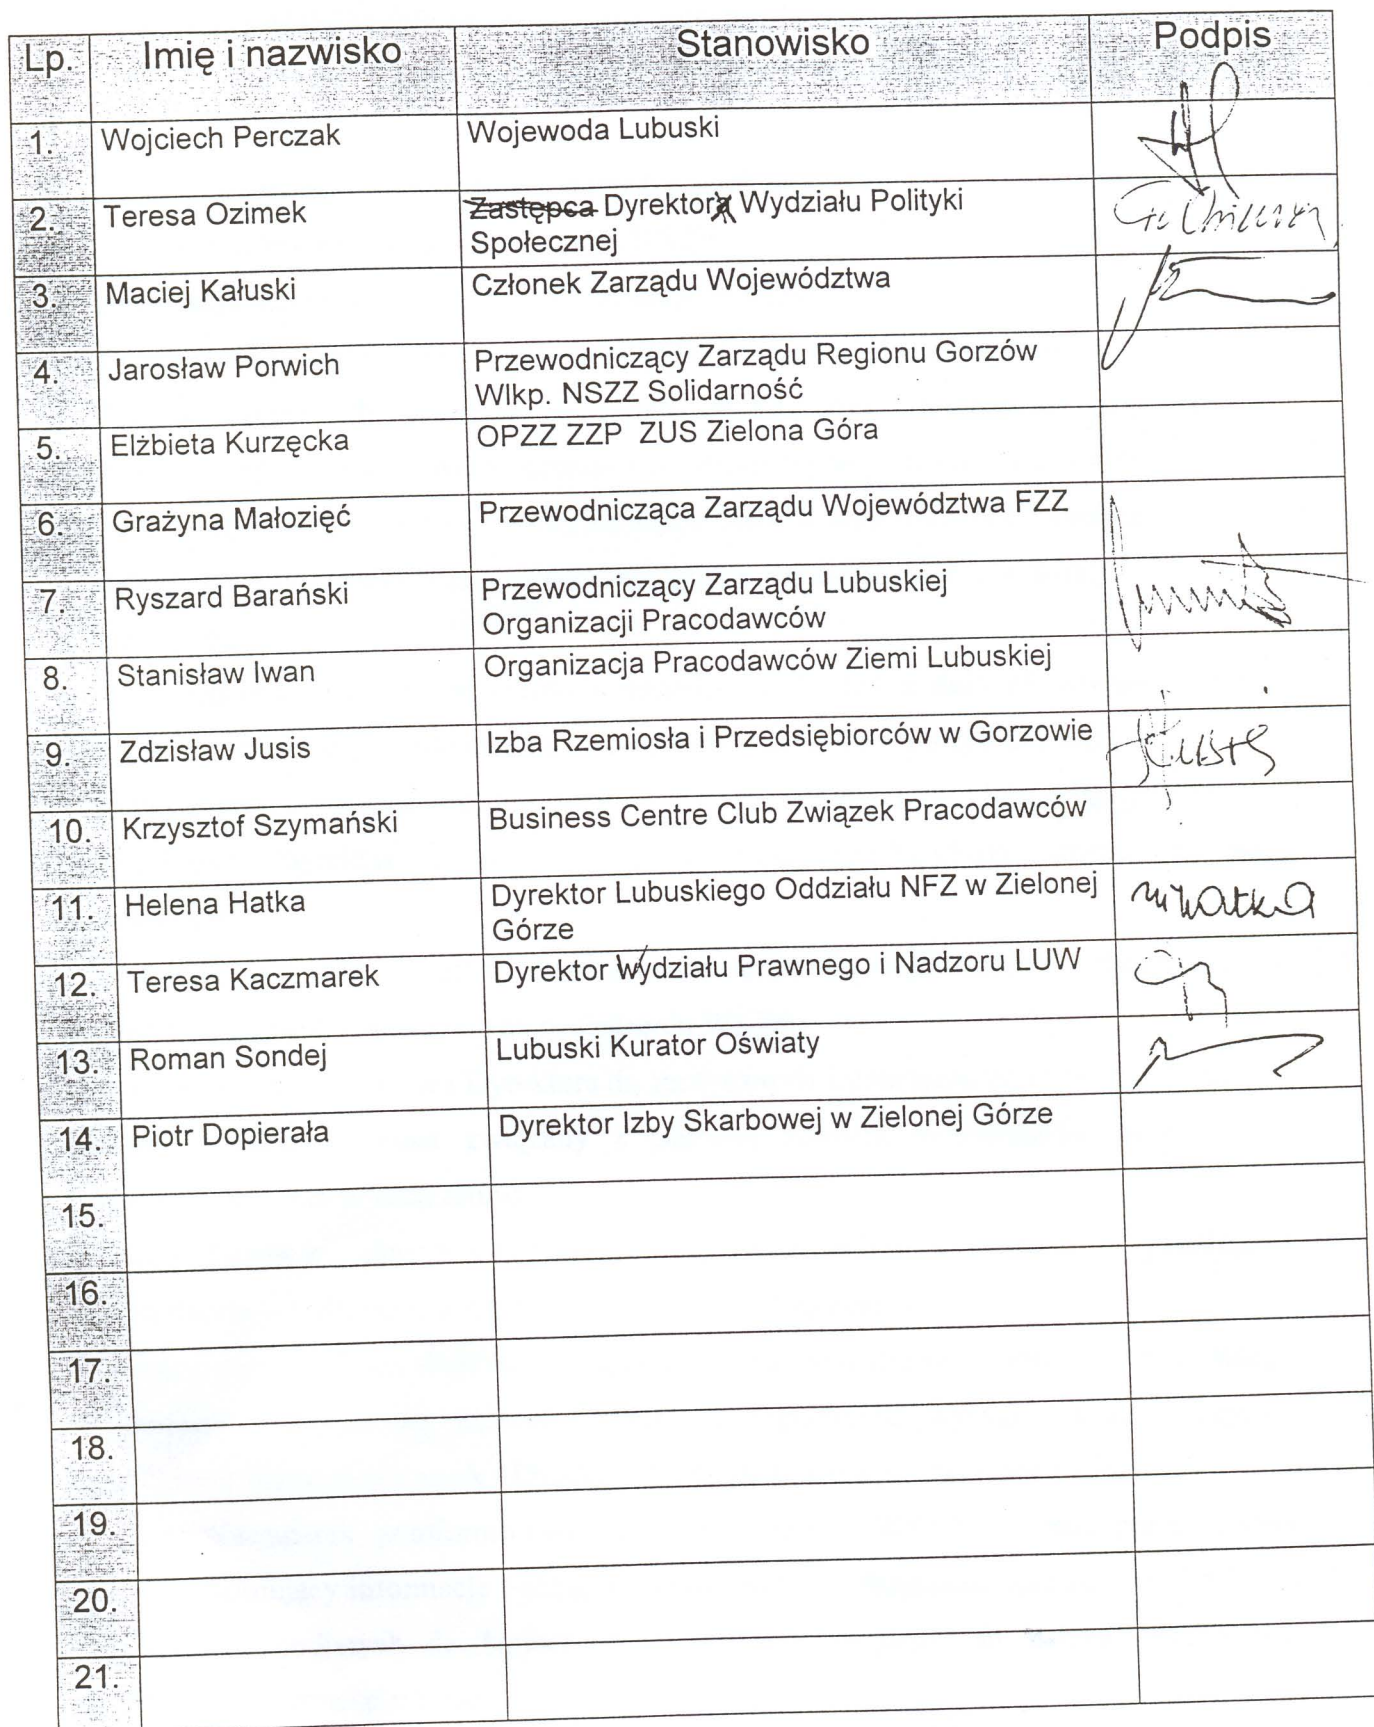 Lp. Imię i nazwisko Stanowisko Podpis
1. Wojciech Perczak Wojewoda Lubuski
2. Teresa Ozimek Zastępca Dyrektora Wydziału Polityki
Społecznej
3. Maciej Kałuski Członek Zarządu Województwa
4. Jarosław Porwich Przewodniczący Zarządu Regionu Gorzów
Wlkp. NSZZ Solidarność
5. Elżbieta Kurzęcka OPZZ ZZP ZUS Zielona Góra
6. Grażyna Małozięć Przewodnicząca Zarządu Województwa FZZ
7. Ryszard Barański Przewodniczący Zarządu Lubuskiej
Organizacji Pracodawców
8. Stanisław Iwan Organizacja Pracodawców Ziemi Lubuskiej
9. Zdzisław Jusis Izba Rzemiosła i Przedsiębiorców w Gorzowie
10. Krzysztof Szymański Business Centre Club Związek Pracodawców
11. Helena Hatka Dyrektor Lubuskiego Oddziału NFZ w Zielonej
Górze
12. Teresa Kaczmarek Dyrektor Wydziału Prawnego i Nadzoru LUW
13. Roman Sondej Lubuski Kurator Oświaty
14. Piotr Dopierała Dyrektor Izby Skarbowej w Zielonej Górze
15.
16.
17.
18.
19.
20.
21.